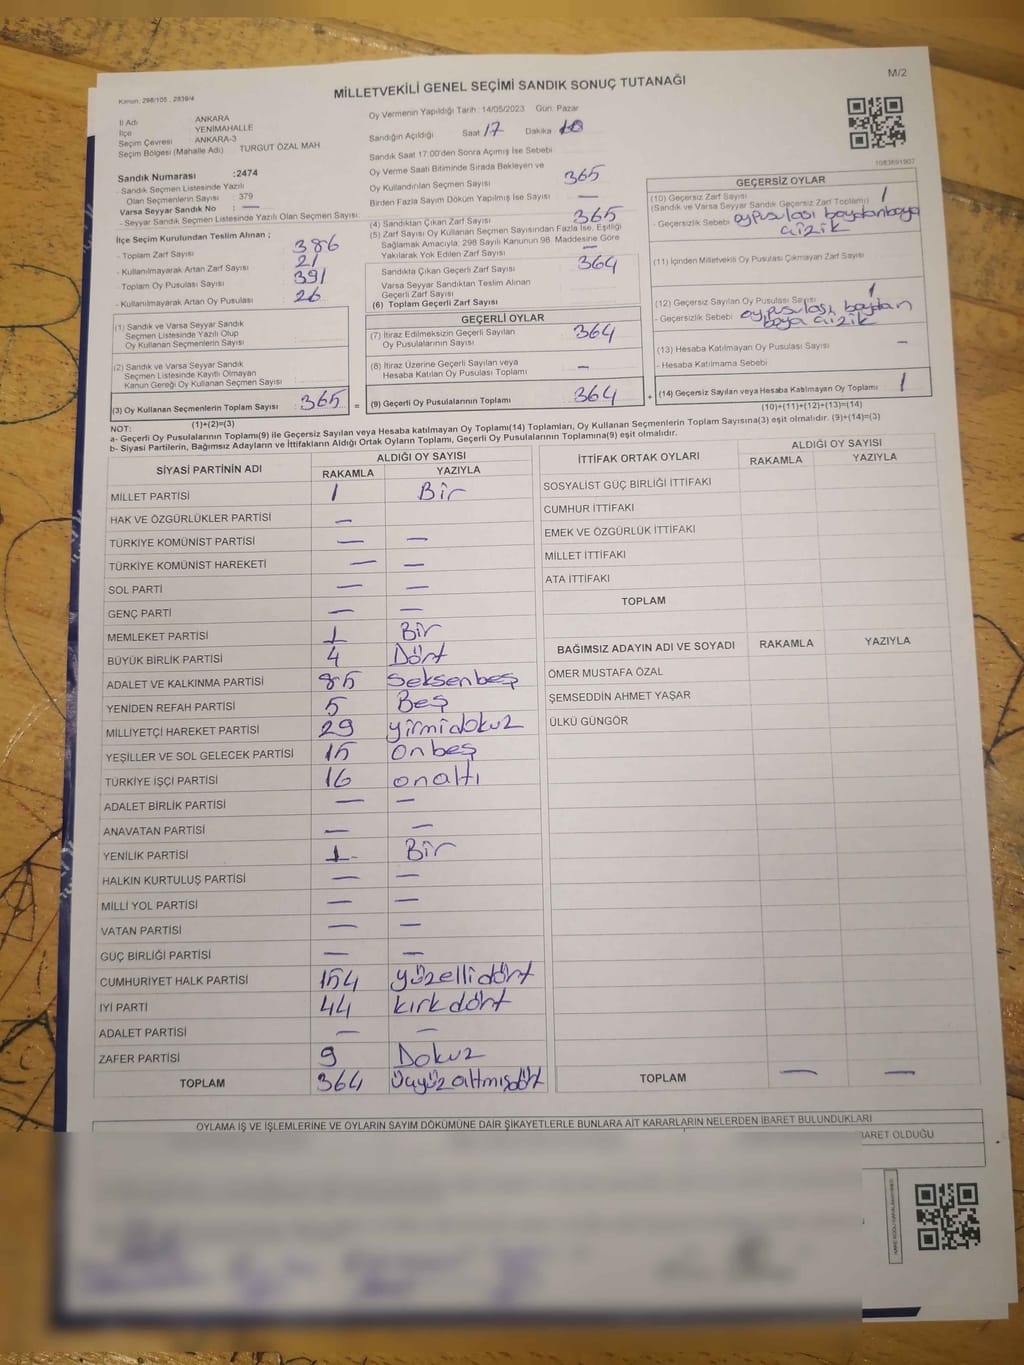 Kanun: 298/105 , 2839/4
MİLLETVEKİLİ GENEL SEÇİMİ SANDIK SONUÇ TUTANAĞI
M/2
İl Adı ANKARA
İlçe YENİMAHALLE
Seçim Çevresi ANKARA-3
Seçim Bölgesi (Mahalle Adı) TURGUT ÖZAL MAH
Sandık Numarası :2474
- Sandık Seçmen Listesinde Yazılı
Olan Seçmenlerin Sayısı : 379
Varsa Seyyar Sandık No : —
- Seyyar Sandık Seçmen Listesinde Yazılı Olan Seçmen Sayısı:
İlçe Seçim Kurulundan Teslim Alınan ;
- Toplam Zarf Sayısı 386
- Kullanılmayarak Artan Zarf Sayısı 21
- Toplam Oy Pusulası Sayısı 391
- Kullanılmayarak Artan Oy Pusulası 26
(1) Sandık ve Varsa Seyyar Sandık
Seçmen Listesinde Yazılı Olup
Oy Kullanan Seçmenlerin Sayısı
(2) Sandık ve Varsa Seyyar Sandık
Seçmen Listesinde Kayıtlı Olmayan
Kanun Gereği Oy Kullanan Seçmen Sayısı
(3) Oy Kullanan Seçmenlerin Toplam Sayısı : 365 =
(1)+(2)=(3)
Oy Vermenin Yapıldığı Tarih : 14/05/2023 Gün: Pazar
Sandığın Açıldığı Saat 17 Dakika 10
Sandık Saat 17:00'den Sonra Açılmış İse Sebebi
Oy Verme Saati Bitiminde Sırada Bekleyen ve
Oy Kullandırılan Seçmen Sayısı 365
Birden Fazla Sayım Döküm Yapılmış İse Sayısı —
(4) Sandıktan Çıkan Zarf Sayısı 365
(5) Zarf Sayısı Oy Kullanan Seçmen Sayısından Fazla İse, Eşitliği
Sağlamak Amacıyla; 298 Sayılı Kanunun 98. Maddesine Göre
Yakılarak Yok Edilen Zarf Sayısı —
Sandıkta Çıkan Geçerli Zarf Sayısı 364
Varsa Seyyar Sandıktan Teslim Alınan
Geçerli Zarf Sayısı
(6) Toplam Geçerli Zarf Sayısı
GEÇERLİ OYLAR
(7) İtiraz Edilmeksizin Geçerli Sayılan
Oy Pusulalarının Sayısı 364
(8) İtiraz Üzerine Geçerli Sayılan veya
Hesaba Katılan Oy Pusulası Toplamı —
(9) Geçerli Oy Pusulalarının Toplamı 364 +
1083691907
GEÇERSİZ OYLAR
(10) Geçersiz Zarf Sayısı
(Sandık ve Varsa Seyyar Sandık Geçersiz Zarf Toplamı) 1
- Geçersizlik Sebebi oy pusulası boydan boya
çizik
(11) İçinden Milletvekili Oy Pusulası Çıkmayan Zarf Sayısı
(12) Geçersiz Sayılan Oy Pusulası Sayısı 1
- Geçersizlik Sebebi oy pusulası, boydan
boya çizik
(13) Hesaba Katılmayan Oy Pusulası Sayısı —
- Hesaba Katılmama Sebebi
(14) Geçersiz Sayılan veya Hesaba Katılmayan Oy Toplamı 1
(10)+(11)+(12)+(13)=(14)
NOT:
a- Geçerli Oy Pusulalarının Toplamı(9) ile Geçersiz Sayılan veya Hesaba katılmayan Oy Toplamı(14) Toplamları, Oy Kullanan Seçmenlerin Toplam Sayısına(3) eşit olmalıdır. (9)+(14)=(3)
b- Siyasi Partilerin, Bağımsız Adayların ve İttifakların Aldığı Ortak Oyların Toplamı, Geçerli Oy Pusulalarının Toplamına(9) eşit olmalıdır.
SİYASİ PARTİNİN ADI ALDIĞI OY SAYISI
RAKAMLA YAZIYLA
MİLLET PARTİSİ 1 Bir
HAK VE ÖZGÜRLÜKLER PARTİSİ —
TÜRKİYE KOMÜNİST PARTİSİ — —
TÜRKİYE KOMÜNİST HAREKETİ — —
SOL PARTİ — —
GENÇ PARTİ — —
MEMLEKET PARTİSİ 1 Bir
BÜYÜK BİRLİK PARTİSİ 4 Dört
ADALET VE KALKINMA PARTİSİ 85 Seksenbeş
YENİDEN REFAH PARTİSİ 5 Beş
MİLLİYETÇİ HAREKET PARTİSİ 29 yirmidokuz
YEŞİLLER VE SOL GELECEK PARTİSİ 15 onbeş
TÜRKİYE İŞÇİ PARTİSİ 16 onaltı
ADALET BİRLİK PARTİSİ — —
ANAVATAN PARTİSİ — —
YENİLİK PARTİSİ 1 Bir
HALKIN KURTULUŞ PARTİSİ — —
MİLLİ YOL PARTİSİ — —
VATAN PARTİSİ — —
GÜÇ BİRLİĞİ PARTİSİ — —
CUMHURİYET HALK PARTİSİ 154 yüzellidört
İYİ PARTİ 44 kırkdört
ADALET PARTİSİ — —
ZAFER PARTİSİ 9 Dokuz
TOPLAM 364 Üçyüzaltmışdört
İTTİFAK ORTAK OYLARI ALDIĞI OY SAYISI
RAKAMLA YAZIYLA
SOSYALİST GÜÇ BİRLİĞİ İTTİFAKI
CUMHUR İTTİFAKI
EMEK VE ÖZGÜRLÜK İTTİFAKI
MİLLET İTTİFAKI
ATA İTTİFAKI
TOPLAM
BAĞIMSIZ ADAYIN ADI VE SOYADI RAKAMLA YAZIYLA
ÖMER MUSTAFA ÖZAL
ŞEMSEDDİN AHMET YAŞAR
ÜLKÜ GÜNGÖR
TOPLAM — —
OYLAMA İŞ VE İŞLEMLERİNE VE OYLARIN SAYIM DÖKÜMÜNE DAİR ŞİKAYETLERLE BUNLARA AİT KARARLARIN NELERDEN İBARET BULUNDUKLARI
BARET OLDUĞU